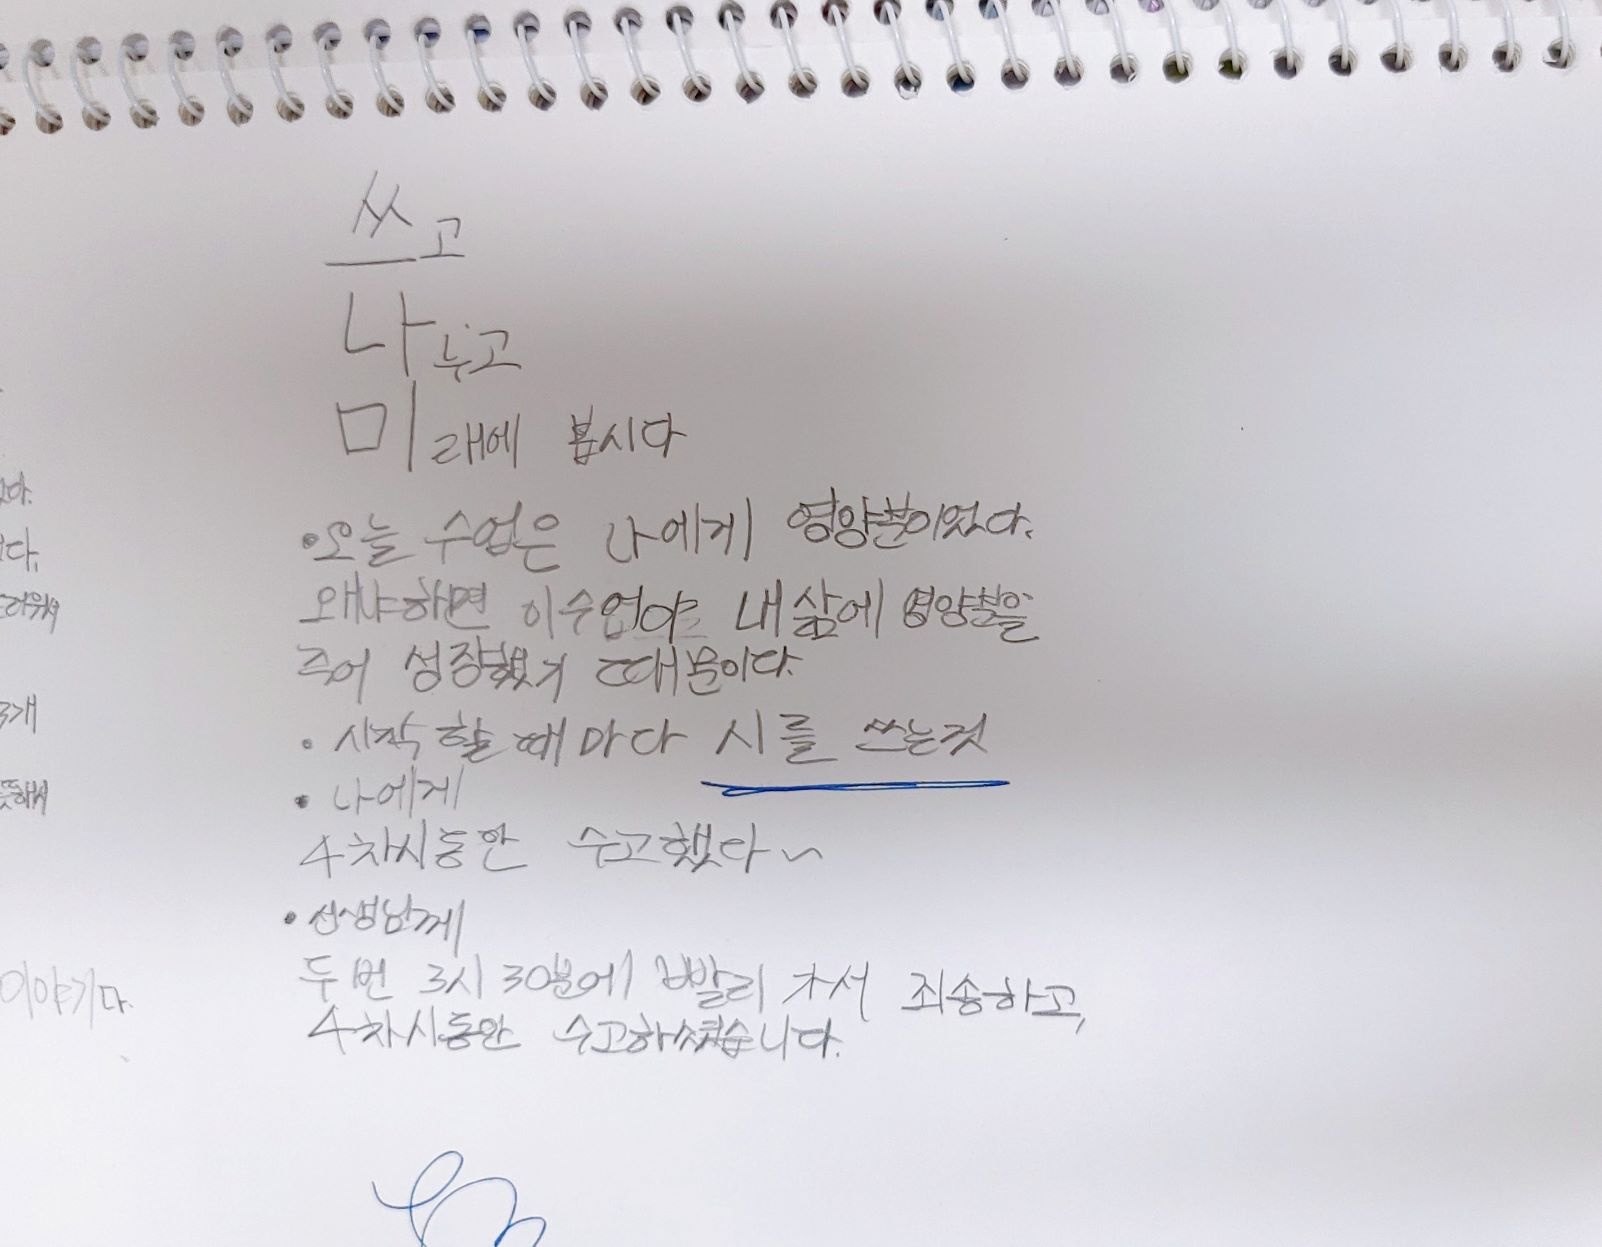 쓰고
나누고
미래에 봅시다
•오늘 수업은 나에게 영양분이었다.
왜냐하면 이수업이 내삶에 영양분을
주어 성장했기 때문이다.
• 시작 할 때 마다 시를 쓰는것
• 나에게
4차시동안 수고했다~
•선생님께
두 번 3시 30분에 빨리 가서 죄송하고,
4차시동안 수고하셨습니다.
다.
다.
3개
이야기다.